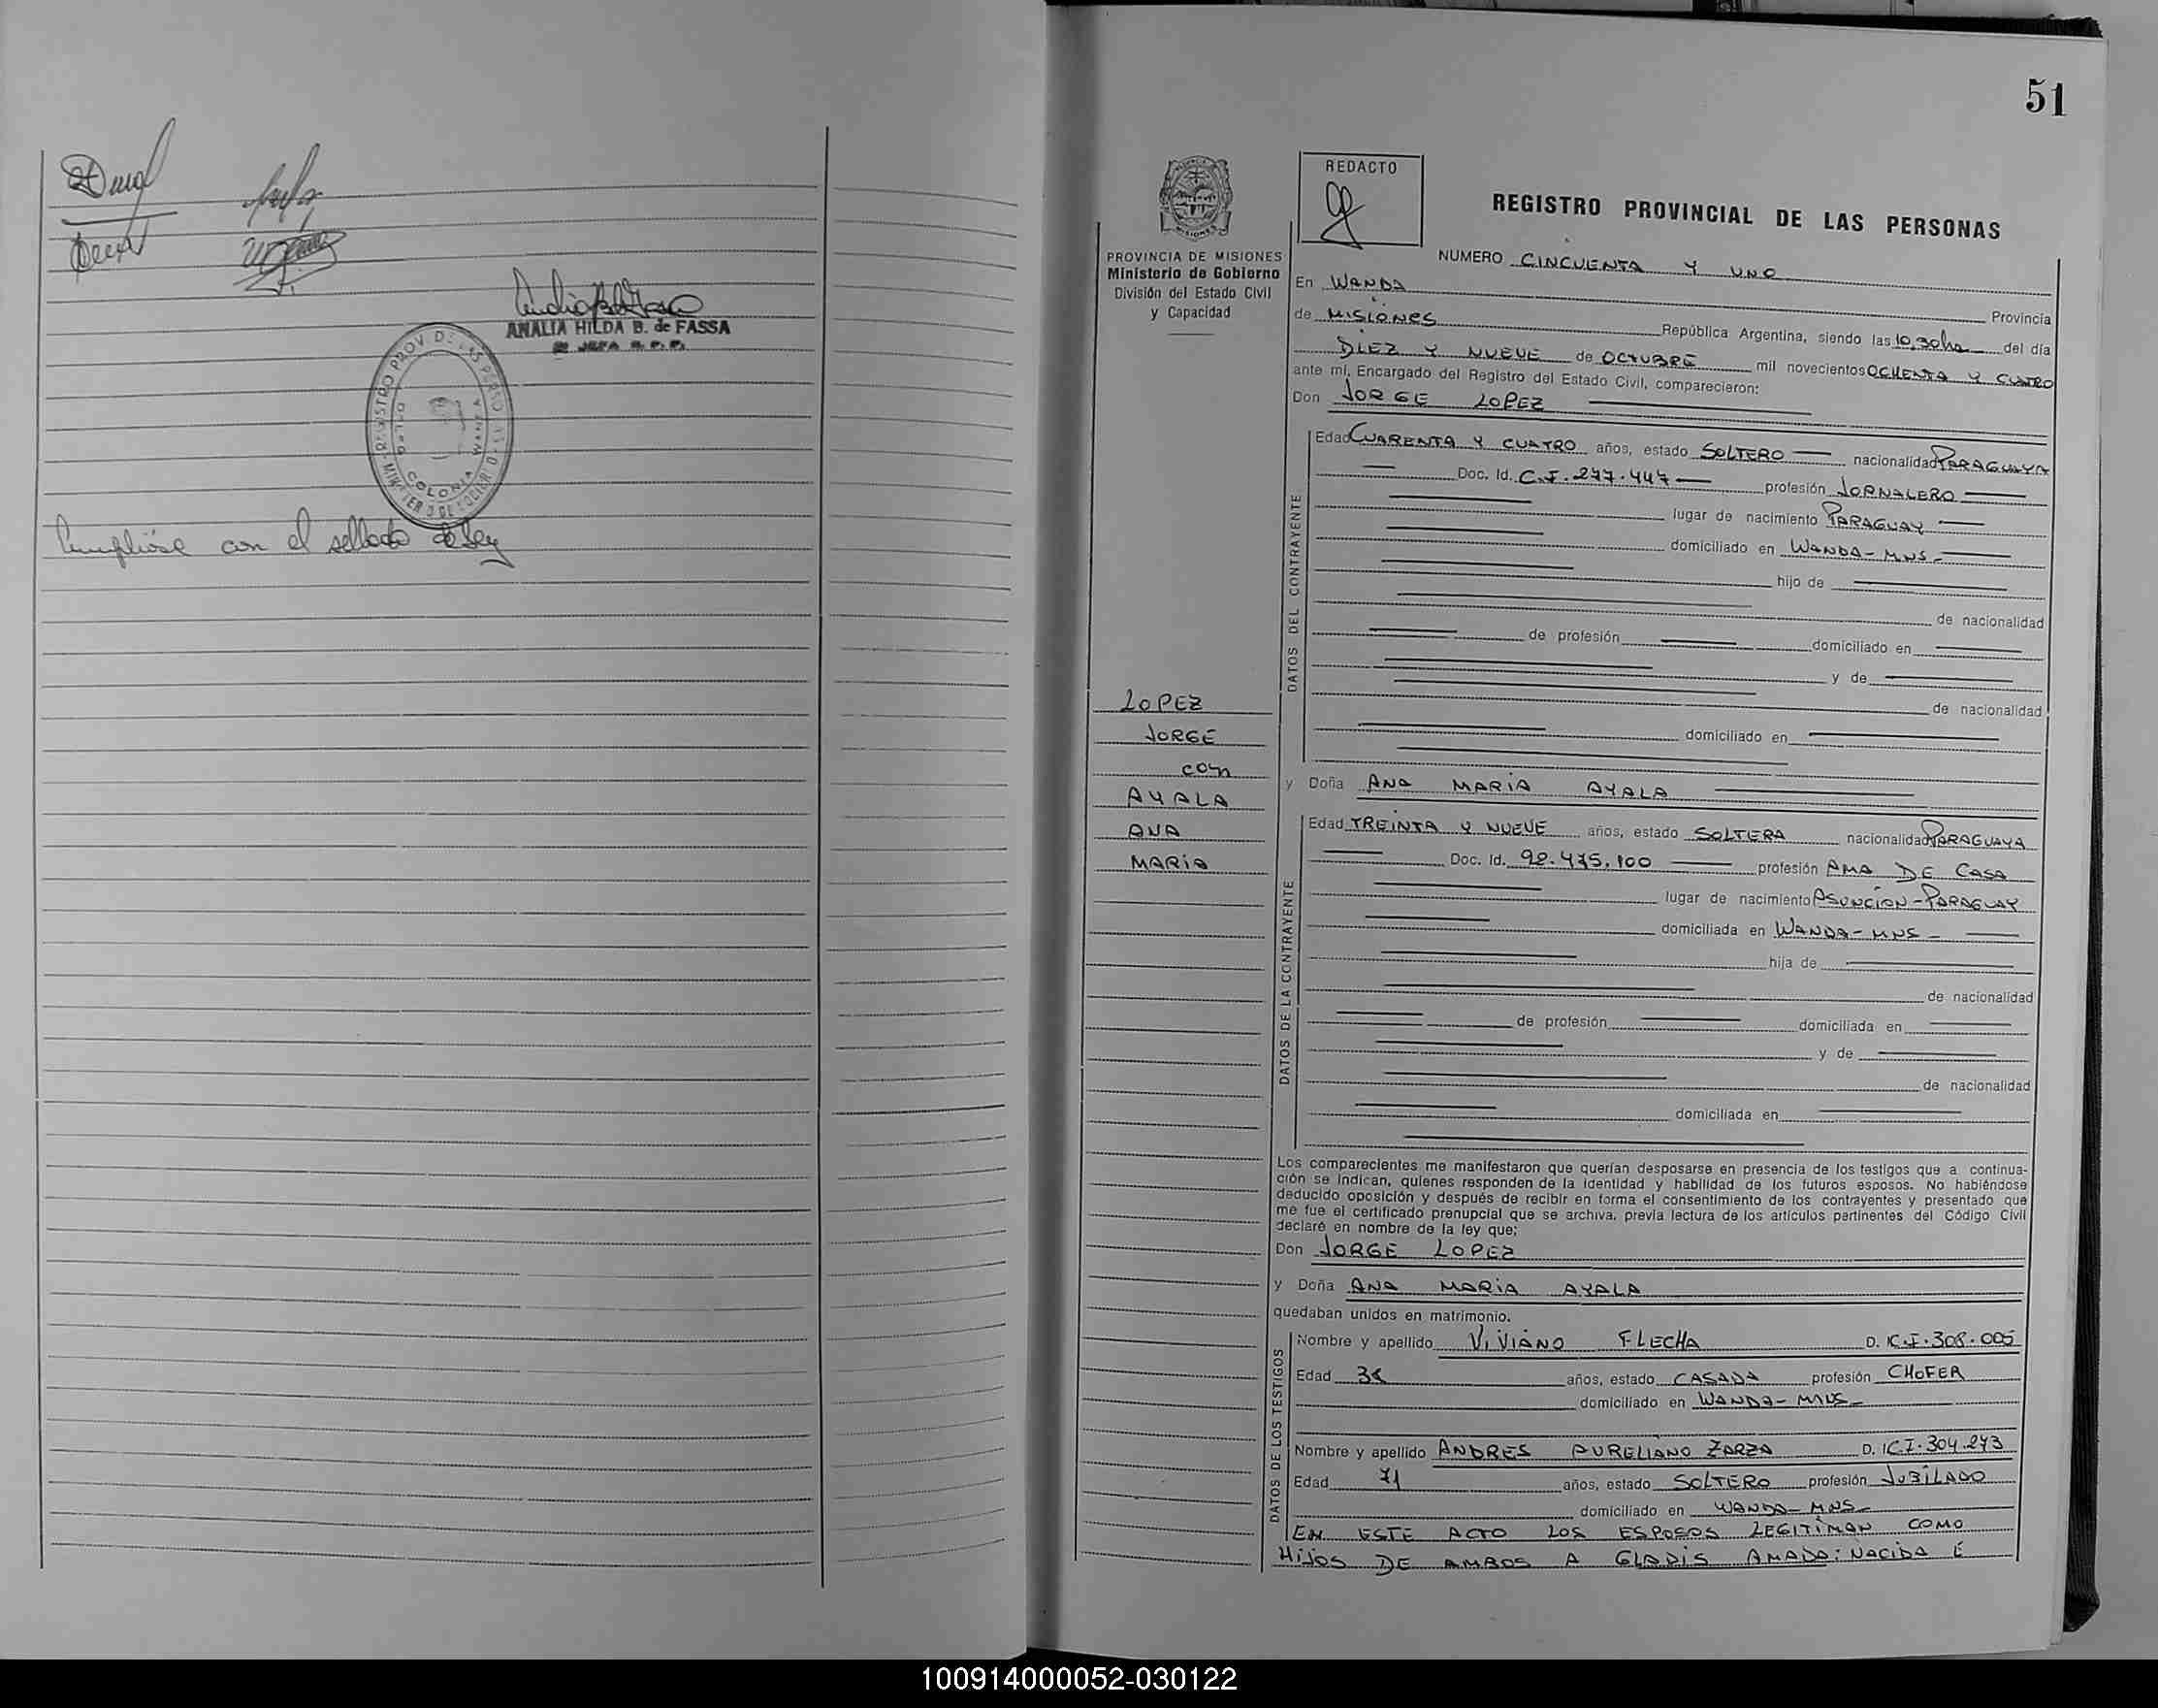 ANALIA HILDA B. de FASSA
REGISTRO PROV. DE LAS PERSONAS
COLONIA WANDA
Cumplióse con el sellado de ley
51
REDACTO
REGISTRO PROVINCIAL DE LAS PERSONAS
MISIONES
PROVINCIA DE MISIONES
Ministerio de Gobierno
División del Estado Civil
y Capacidad
NUMERO CINCUENTA Y UNO
En WANDA
Provincia
de MISIONES República Argentina, siendo las 10,30hs del día
DIEZ Y NUEVE de OCTUBRE mil novecientos OCHENTA Y CUATRO
ante mí, Encargado del Registro del Estado Civil, comparecieron:
Don JORGE LOPEZ
DATOS DEL CONTRAYENTE
Edad CUARENTA Y CUATRO años, estado SOLTERO nacionalidad PARAGUAYA
Doc. Id. C.I. 277.447 profesión JORNALERO
lugar de nacimiento PARAGUAY
domiciliado en WANDA-MNS-
hijo de
de nacionalidad
de profesión domiciliado en
y de
de nacionalidad
domiciliado en
LOPEZ
JORGE
con
AYALA
ANA
MARIA
y Doña ANA MARIA AYALA
DATOS DE LA CONTRAYENTE
Edad TREINTA Y NUEVE años, estado SOLTERA nacionalidad PARAGUAYA
Doc. Id. 92.475.100 profesión AMA DE CASA
lugar de nacimiento ASUNCION-PARAGUAY
domiciliada en WANDA-MNS-
hija de
de nacionalidad
de profesión domiciliada en
y de
de nacionalidad
domiciliada en
Los comparecientes me manifestaron que querían desposarse en presencia de los testigos que a continua-
ción se indican, quienes responden de la identidad y habilidad de los futuros esposos. No habiéndose
deducido oposición y después de recibir en forma el consentimiento de los contrayentes y presentado que
me fue el certificado prenupcial que se archiva, previa lectura de los artículos pertinentes del Código Civil
declaré en nombre de la ley que:
Don JORGE LOPEZ
y Doña ANA MARIA AYALA
quedaban unidos en matrimonio.
DATOS DE LOS TESTIGOS
Nombre y apellido VIVIANO FLECHA D. I C.I. 308.005
Edad años, estado CASADA profesión CHOFER
domiciliado en WANDA-MNS-
Nombre y apellido ANDRES AURELIANO ZARZA D. I C.I. 304.273
Edad 71 años, estado SOLTERO profesión JUBILADO
domiciliado en WANDA-MNS-
EN ESTE ACTO LOS ESPOSOS LEGITIMAN COMO
HIJOS DE AMBOS A GLADIS AMADA: NACIDA E
100914000052-030122